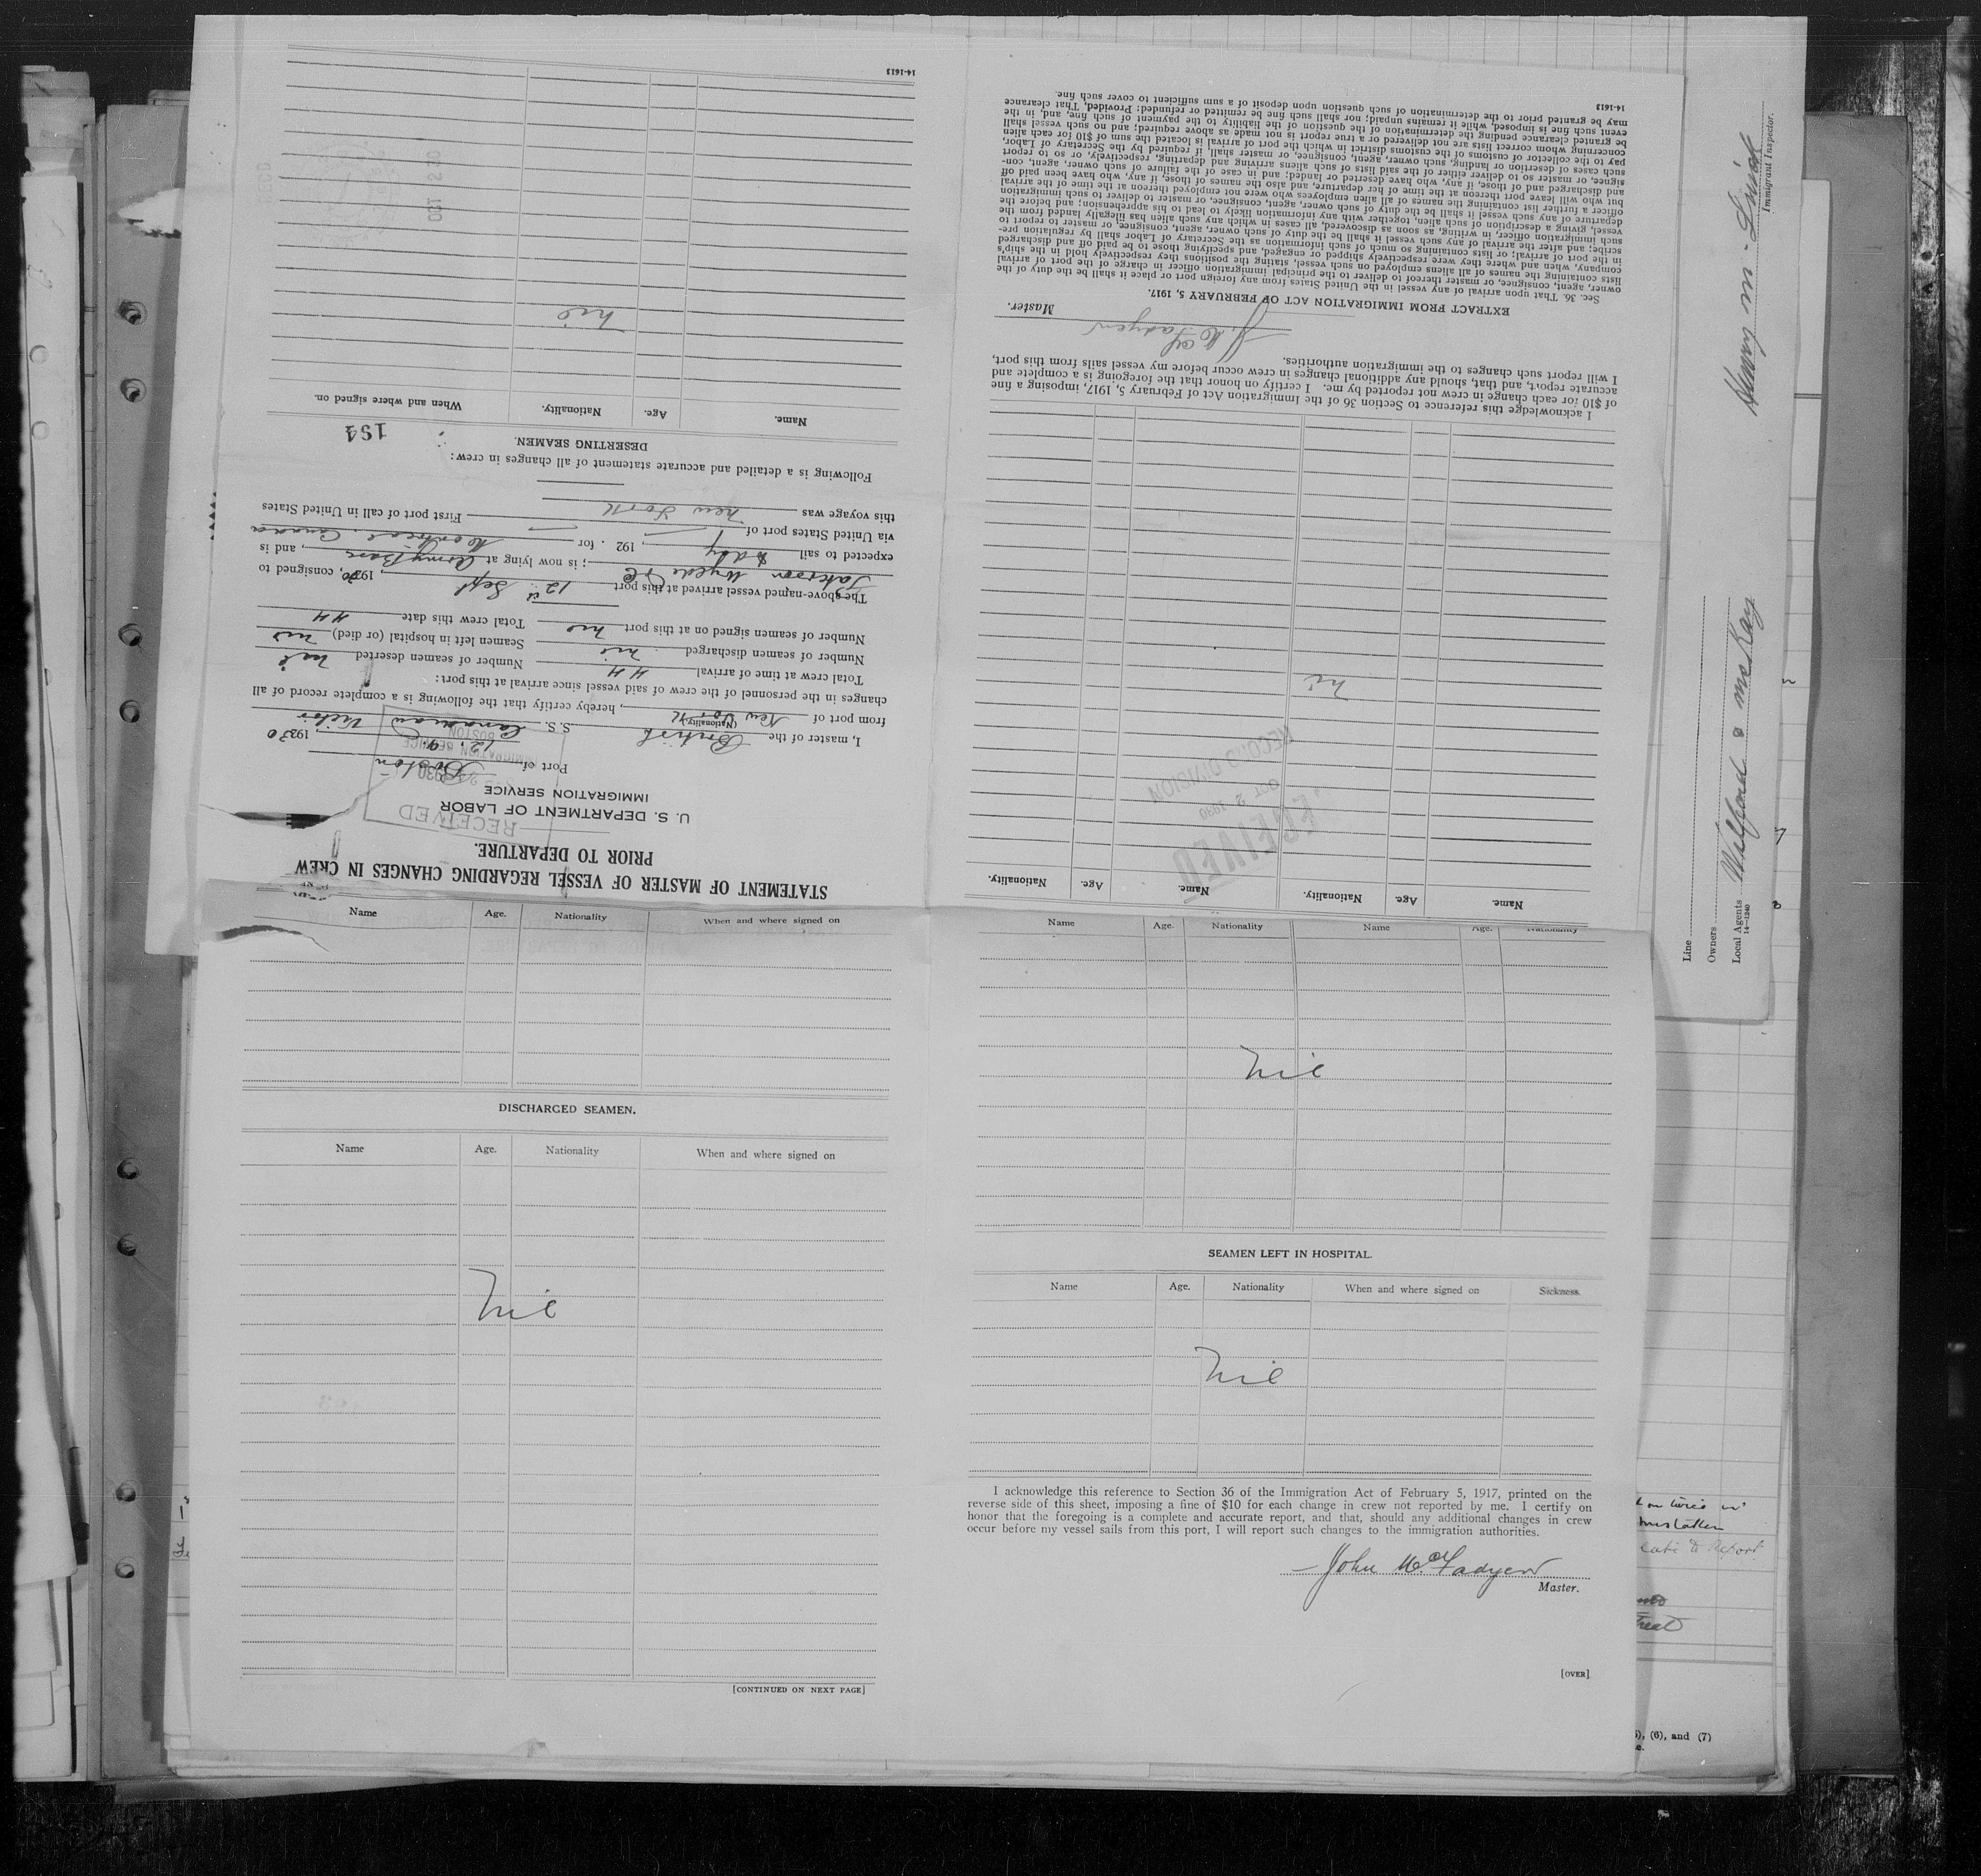 STATEMENT OF MASTER OF VESSEL REGARDING CHANGES IN CREW
PRIOR TO DEPARTURE.
U. S. DEPARTMENT OF LABOR
IMMIGRATION SERVICE
RECEIVED
IMMIGRATION SERVICE
BOSTON
Port of Boston
12, 1930
I, master of the British S. S. Canadian Victor
(Nationality)
from port of New York, hereby certify that the following is a complete record of all
changes in the personnel of the crew of said vessel since arrival at this port:
Total crew at time of arrival 44 Number of seamen deserted nil
Number of seamen discharged nil Seamen left in hospital (or died) nil
Number of seamen signed on at this port nil Total crew this date 44
The above-named vessel arrived at this port 12th Sept, 1930, consigned to
; is now lying at Army Base, and is
expected to sail today, 192 . for Montreal, Canada
via United States port of
this voyage was New York First port of call in United States
Following is a detailed and accurate statement of all changes in crew:
DESERTING SEAMEN.
194
Name. Age. Nationality. When and where signed on.
nil
14-1613
Name. Age. Nationality. Name. Age. Nationality.
RECEIVED
OCT 2 1930
RECORD DIVISION
nil
I acknowledge this reference to Section 36 of the Immigration Act of February 5, 1917, imposing a fine
of $10 for each change in crew not reported by me. I certify on honor that the foregoing is a complete and
accurate report, and that, should any additional changes in crew occur before my vessel sails from this port,
I will report such changes to the immigration authorities.
J. McFadyen
Master.
EXTRACT FROM IMMIGRATION ACT OF FEBRUARY 5, 1917.
Sec. 36. That upon arrival of any vessel in the United States from any foreign port or place it shall be the duty of the
owner, agent, consignee, or master thereof to deliver to the principal immigration officer in charge of the port of arrival
lists containing the names of all aliens employed on such vessel, stating the positions they respectively hold in the ship's
company, when and where they were respectively shipped or engaged, and specifying those to be paid off and discharged
in the port of arrival; or lists containing so much of such information as the Secretary of Labor shall by regulation pre-
scribe; and after the arrival of any such vessel it shall be the duty of such owner, agent, consignee, or master to report to
such immigration officer, in writing, as soon as discovered, all cases in which any such alien has illegally landed from the
vessel, giving a description of such alien, together with any information likely to lead to his apprehension; and before the
departure of any such vessel it shall be the duty of such owner, agent, consignee, or master to deliver to such immigration
officer a further list containing the names of all alien employees who were not employed thereon at the time of the arrival
but who will leave port thereon at the time of her departure, and also the names of those, if any, who have been paid off
and discharged and of those, if any, who have deserted or landed; and in case of the failure of such owner, agent, con-
signee, or master so to deliver either of the said lists of such aliens arriving and departing, respectively, or so to report
such cases of desertion or landing, such owner, agent, consignee, or master shall, if required by the Secretary of Labor,
pay to the collector of customs of the customs district in which the port of arrival is located the sum of $10 for each alien
concerning whom correct lists are not delivered or a true report is not made as above required; and no such vessel shall
be granted clearance pending the determination of the question of the liability to the payment of such fine, and, in the
event such fine is imposed, while it remains unpaid; nor shall such fine be remitted or refunded: Provided, That clearance
may be granted prior to the determination of such question upon deposit of a sum sufficient to cover such fine.
14-1613
Immigrant Inspector.
Line
Owners
Local Agents
14-1240
Name Age. Nationality When and where signed on
DISCHARGED SEAMEN.
Name Age. Nationality When and where signed on
nil
[CONTINUED ON NEXT PAGE]
Name Age. Nationality Name Age. Nationality
nil
SEAMEN LEFT IN HOSPITAL.
Name Age. Nationality When and where signed on Sickness.
nil
I acknowledge this reference to Section 36 of the Immigration Act of February 5, 1917, printed on the
reverse side of this sheet, imposing a fine of $10 for each change in crew not reported by me. I certify on
honor that the foregoing is a complete and accurate report, and that, should any additional changes in crew
occur before my vessel sails from this port, I will report such changes to the immigration authorities.
John McFadyen
Master.
[OVER]
(6), and (7)